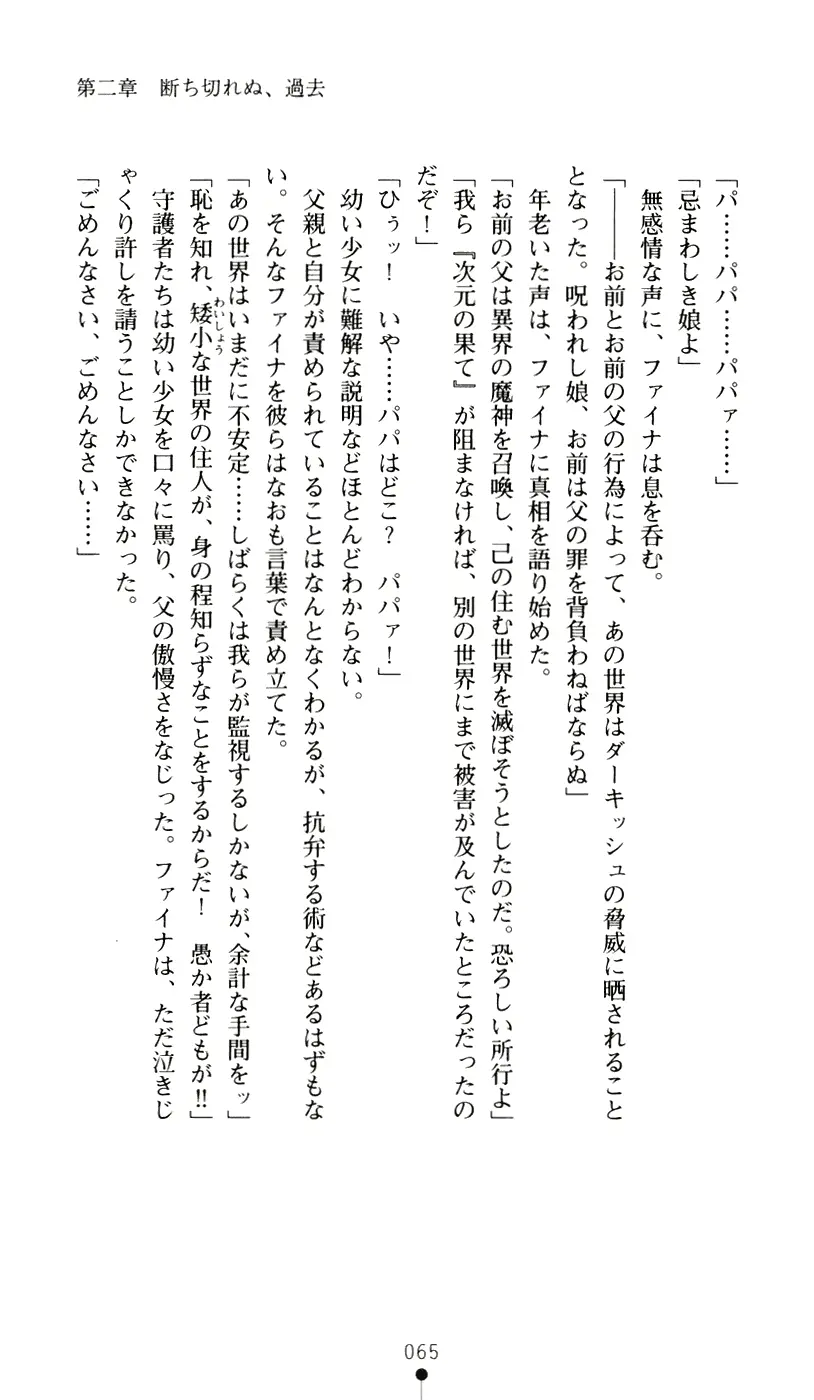 第二章　断ち切れぬ、過去
「パ……パパ……パパァ……」
「忌まわしき娘よ」
　無感情な声に、ファイナは息を呑む。
「――お前とお前の父の行為によって、あの世界はダーキッシュの脅威に晒されること
となった。呪われし娘、お前は父の罪を背負わねばならぬ」
　年老いた声は、ファイナに真相を語り始めた。
「お前の父は異界の魔神を召喚し、己の住む世界を滅ぼそうとしたのだ。恐ろしい所行よ」
「我ら『次元の果て』が阻まなければ、別の世界にまで被害が及んでいたところだったの
だぞ！」
「ひぅッ！　いや……パパはどこ？　パパァ！」
　幼い少女に難解な説明などほとんどわからない。
　父親と自分が責められていることはなんとなくわかるが、抗弁する術などあるはずもな
い。そんなファイナを彼らはなおも言葉で責め立てた。
「あの世界はいまだに不安定……しばらくは我らが監視するしかないが、余計な手間をッ」
「恥を知れ、矮小な世界の住人が、身の程知らずなことをするからだ！　愚か者どもが!!」
わいしょう
　守護者たちは幼い少女を口々に罵り、父の傲慢さをなじった。ファイナは、ただ泣きじ
ゃくり許しを請うことしかできなかった。
「ごめんなさい、ごめんなさい……」
065